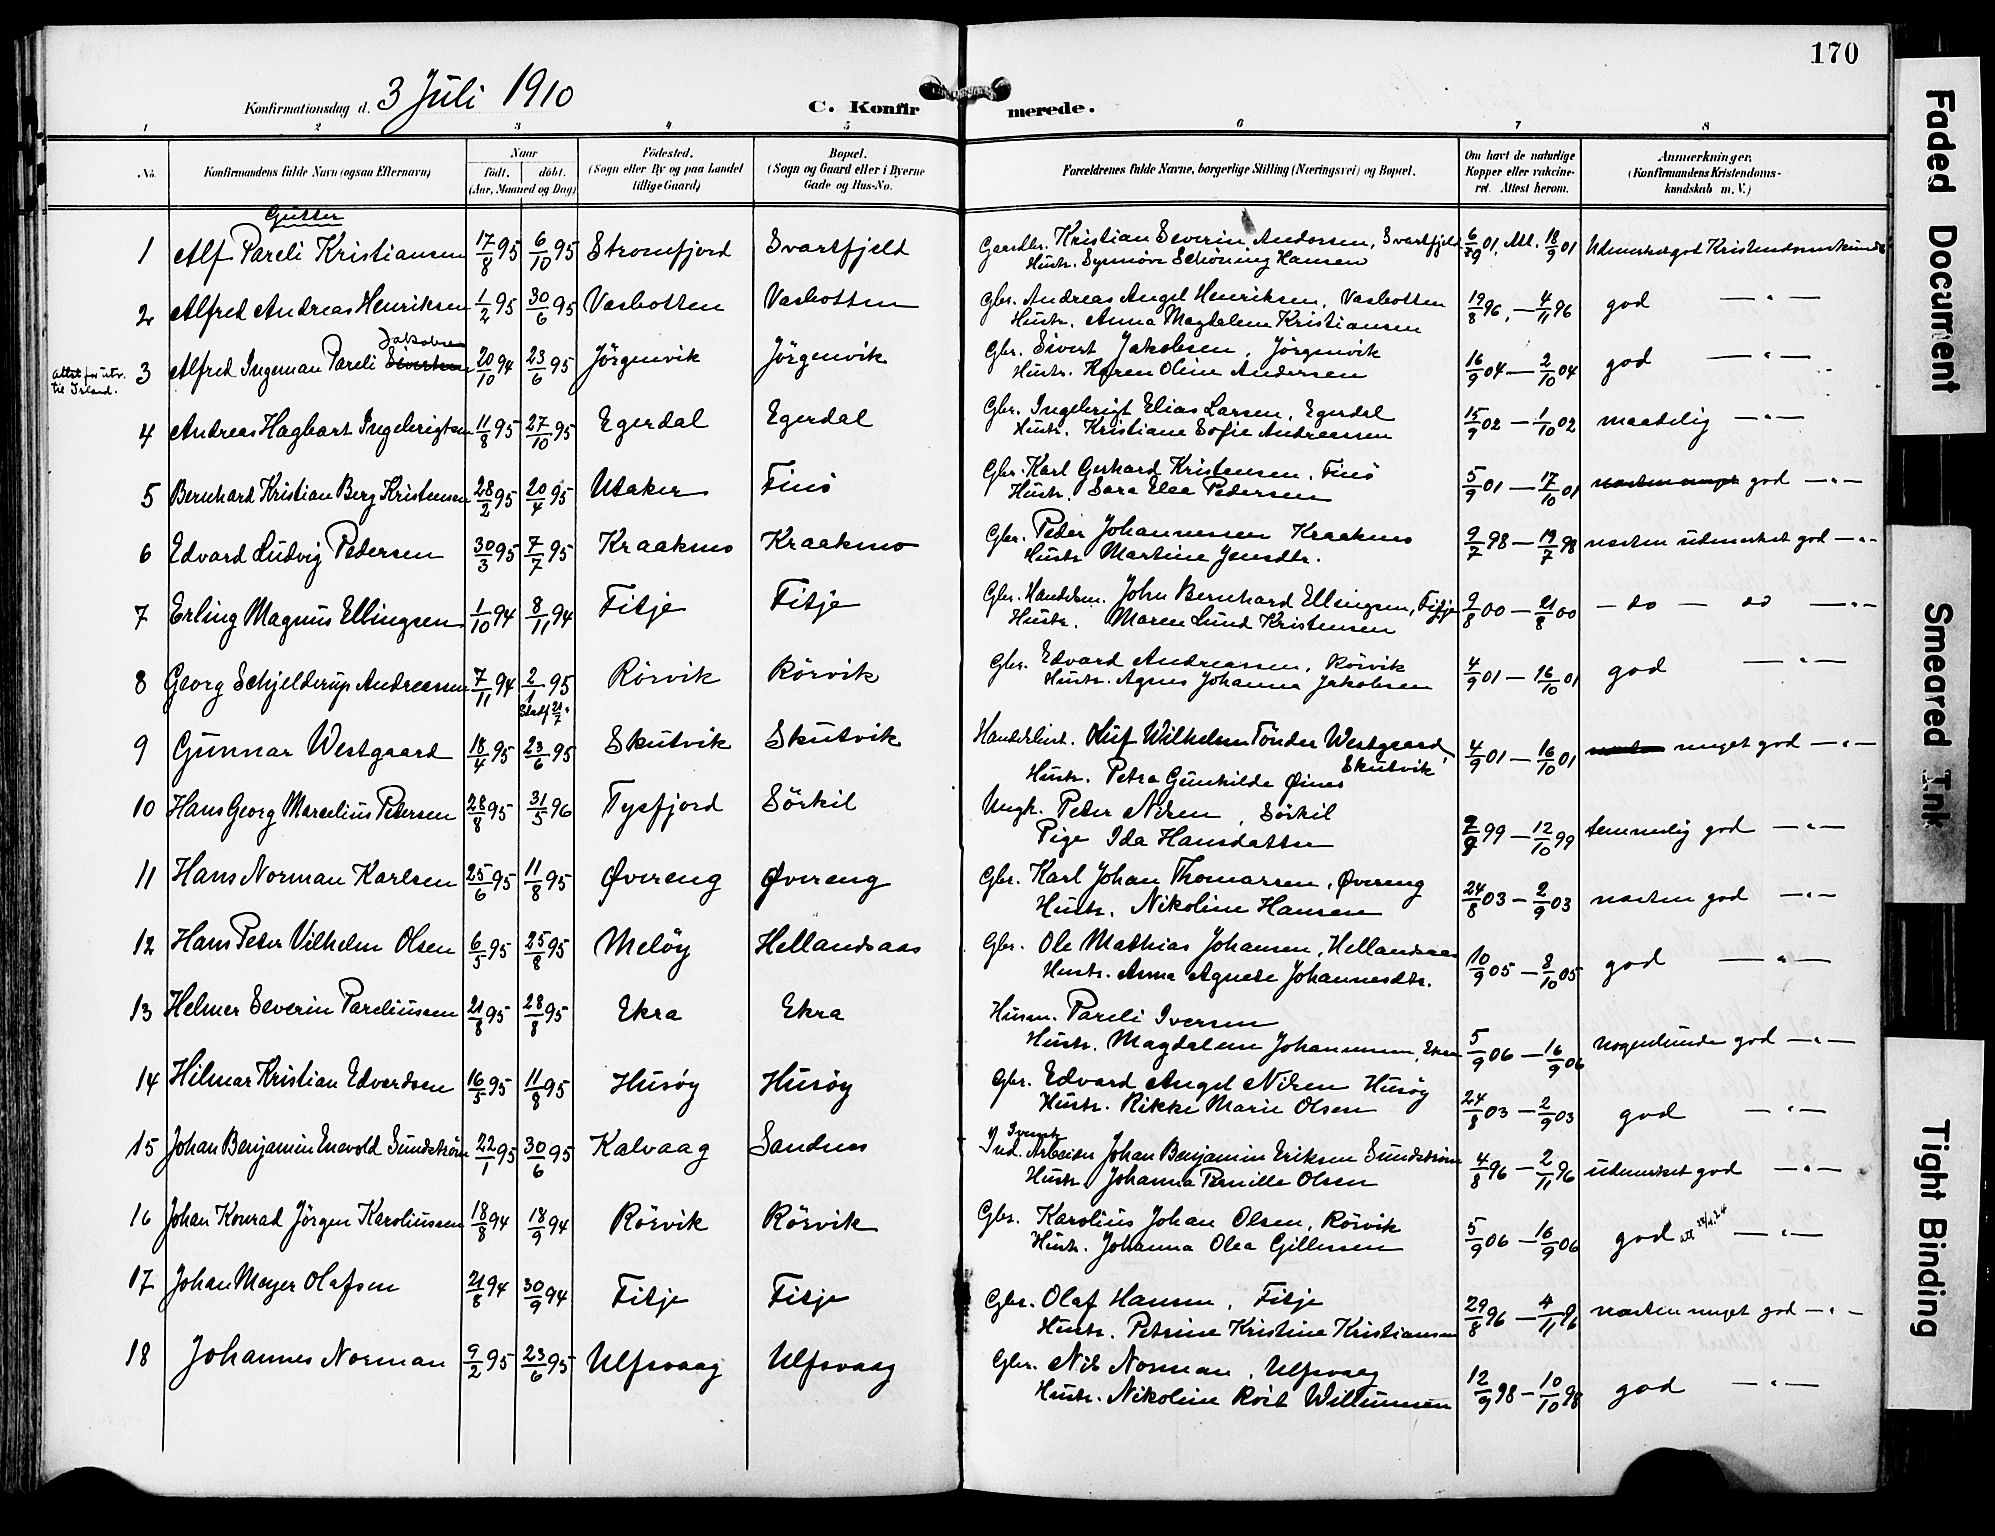 170
Konfirmationsdag d. 3 Juli 1910
C. Konfirmerede.
1 2 3 4 5 6 7 8
No.
Konfirmandens fulde Navn (ogsaa Efternavn)
Naar
födt. döbt.
(Aar, Maaned og Dag)
Födested.
(Sogn eller By og paa Landet
tillige Gaard)
Bopæl.
(Sogn og Gaard eller i Byerne
Gade og Hus-No.
Forældrenes fulde Navne, borgerlige Stilling (Næringsvei) og Bopæl.
Om havt de naturlige
Kopper eller vakcine-
ret. Attest herom.
Anmerkninger.
(Konfirmandens Kristendoms-
kundskab m. V.)
Gutter
1 Alf Pareli Kristiansen 17/8 95 6/10 95 Stromfjord Svartfjeld Kristian Severin Andersen, Svartfjeld 6/9 01. Att. 18/9 01 Udmerket god Kristendomskundsk
Hustr. Synnöve Schöning Hansen
2 Alfred Andreas Henriksen 1/2 95 30/6 95 Vasbotten Vasbotten Gbr. Andreas Angel Henriksen, Vasbotten 19/8 96. — 4/11 96 god — " —
Hustr. Anna Magdalena Kristiansen
Jakobsen
attst for utv.
til Irland.
3 Alfred Ingeman Pareli Sivertsen 20/10 94 23/6 95 Jörgenvik Jörgenvik Gbr. Sivert Jakobsen, Jörgenvik 16/9 04 — 2/10 04 god — " —
Hustr. Karen Oline Andersen
4 Andreas Hagbart Ingebrigtsen 11/8 95 27/10 95 Egerdal Egerdal Gbr. Ingebrigt Elias Larsen, Egerdal 15/9 02 — 1/10 02 maadelig — " —
Hustr. Kristiane Sofie Andreassen
5 Bernhard Kristian Berg Kristensen 28/2 95 20/4 95 Utaker Finö Gbr. Karl Gerhard Kristensen, Finö 5/9 01 — 17/10 01 næsten meget god — " —
Hustr. Sara Elea Pedersen
6 Edvard Ludvig Pedersen 30/3 95 7/7 95 Kraakmo Kraakmo Gbr. Peder Johannesen Kraakmo 9/7 98 — 19/7 98 næsten udmerket god — " —
Hustr Martine Jensdtr.
7 Erling Magnus Ellingsen 1/10 94 8/11 94 Fitje Fitje Gbr. Handelsm. John Bernhard Ellingsen, Fitje 9/8 00 — 21/8 00 — do — do — " —
Hustr. Maren Lund Kristensen
8 Georg Schjelderup Andreassen 7/11 94 2/1 95 Rörvik Rörvik Gbr. Edvard Andreassen, Rörvik 4/9 01 — 16/10 01 god — " —
Stadf 21/7
Hustr. Agnes Johanna Jakobsen
9 Gunnar Westgaard 18/4 95 23/6 95 Skutvik Skutvik Handelsbest. Oluf Wilhelm Tönder Westgaard, 4/9 01 — 16/10 01 meget god — " —
Skutvik
Hustr. Petra Gunhilde Øines
10 Hans Georg Marcelius Petersen 28/8 95 31/5 96 Tysfjord Sörkil Ungk. Peter Nilsen, Sörkil 99 — 12/10 99 temmelig god — " —
Pige Ida Hansdatter
11 Hans Norman Karlsen 25/6 95 11/8 95 Øvereng Øvereng Gbr. Karl Johan Thomassen, Øvereng 24/8 03 — 2/9 03 næsten god — " —
Hustr. Nikoline Hansen
12 Hans Peter Vilhelm Olsen 6/5 95 25/8 95 Melöy Hellandsaas Gbr. Ole Mathias Johansen, Hellandsaas 10/9 05 — 8/10 05 god — " —
Hustr. Anna Agnete Johannesdtr.
13 Helmer Severin Pareliussen 21/8 95 28/8 95 Ekra Ekra Husm. Pareli Iversen
Hustr. Magdalena Johannesen, Ekra 5/9 06 — 16/9 06 nogenlunde god — " —
14 Hilmar Kristian Edvardsen 16/5 95 11/8 95 Husöy Husöy Gbr. Edvard Angel Nilsen Husöy 24/8 03 — 2/9 03 god — " —
Hustr. Rikke Marie Olsen
15 Johan Benjamin Enevold Sundström 22/1 95 30/6 95 Kalvaag Sandnes Svensk
Ind. Arbeider Johan Benjamin Eriksen Sundström 4/8 96 — 2/11 96 udmerket god — " —
Hustr. Johanna Pernille Olsen
16 Johan Konrad Jörgen Karoliussen 18/8 94 18/9 94 Rörvik Rörvik Gbr. Karolius Johan Olsen, Rörvik 5/9 06 — 16/9 06 god att — " —
Hustr. Johanna Olea Gillessen
17 Johan Meyer Olafsen 21/8 94 30/9 94 Fitje Fitje Gbr. Olaf Hansen, Fitje 29/8 96 — 4/11 96 næsten meget god — " —
Hustr. Petrine Kristine Kristiansen
18 Johannes Norman 9/2 95 23/6 95 Ulfsvaag Ulfsvaag Gbr. Nils Norman, Ulfsvaag 12/9 98 — 10/10 98 god — " —
Hustr. Nikoline Röst Willumsen
Faded Document
Smeared Ink
Tight Binding